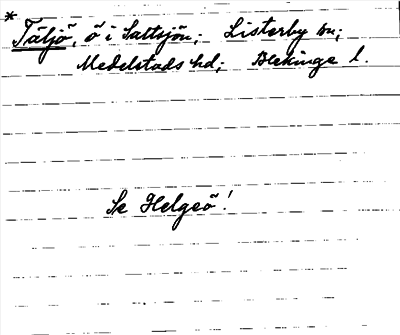 *
Täljö, ö i Saltsjön; Listerby sn;
Medelstads hd; Blekinge l.
Se Helgeö!